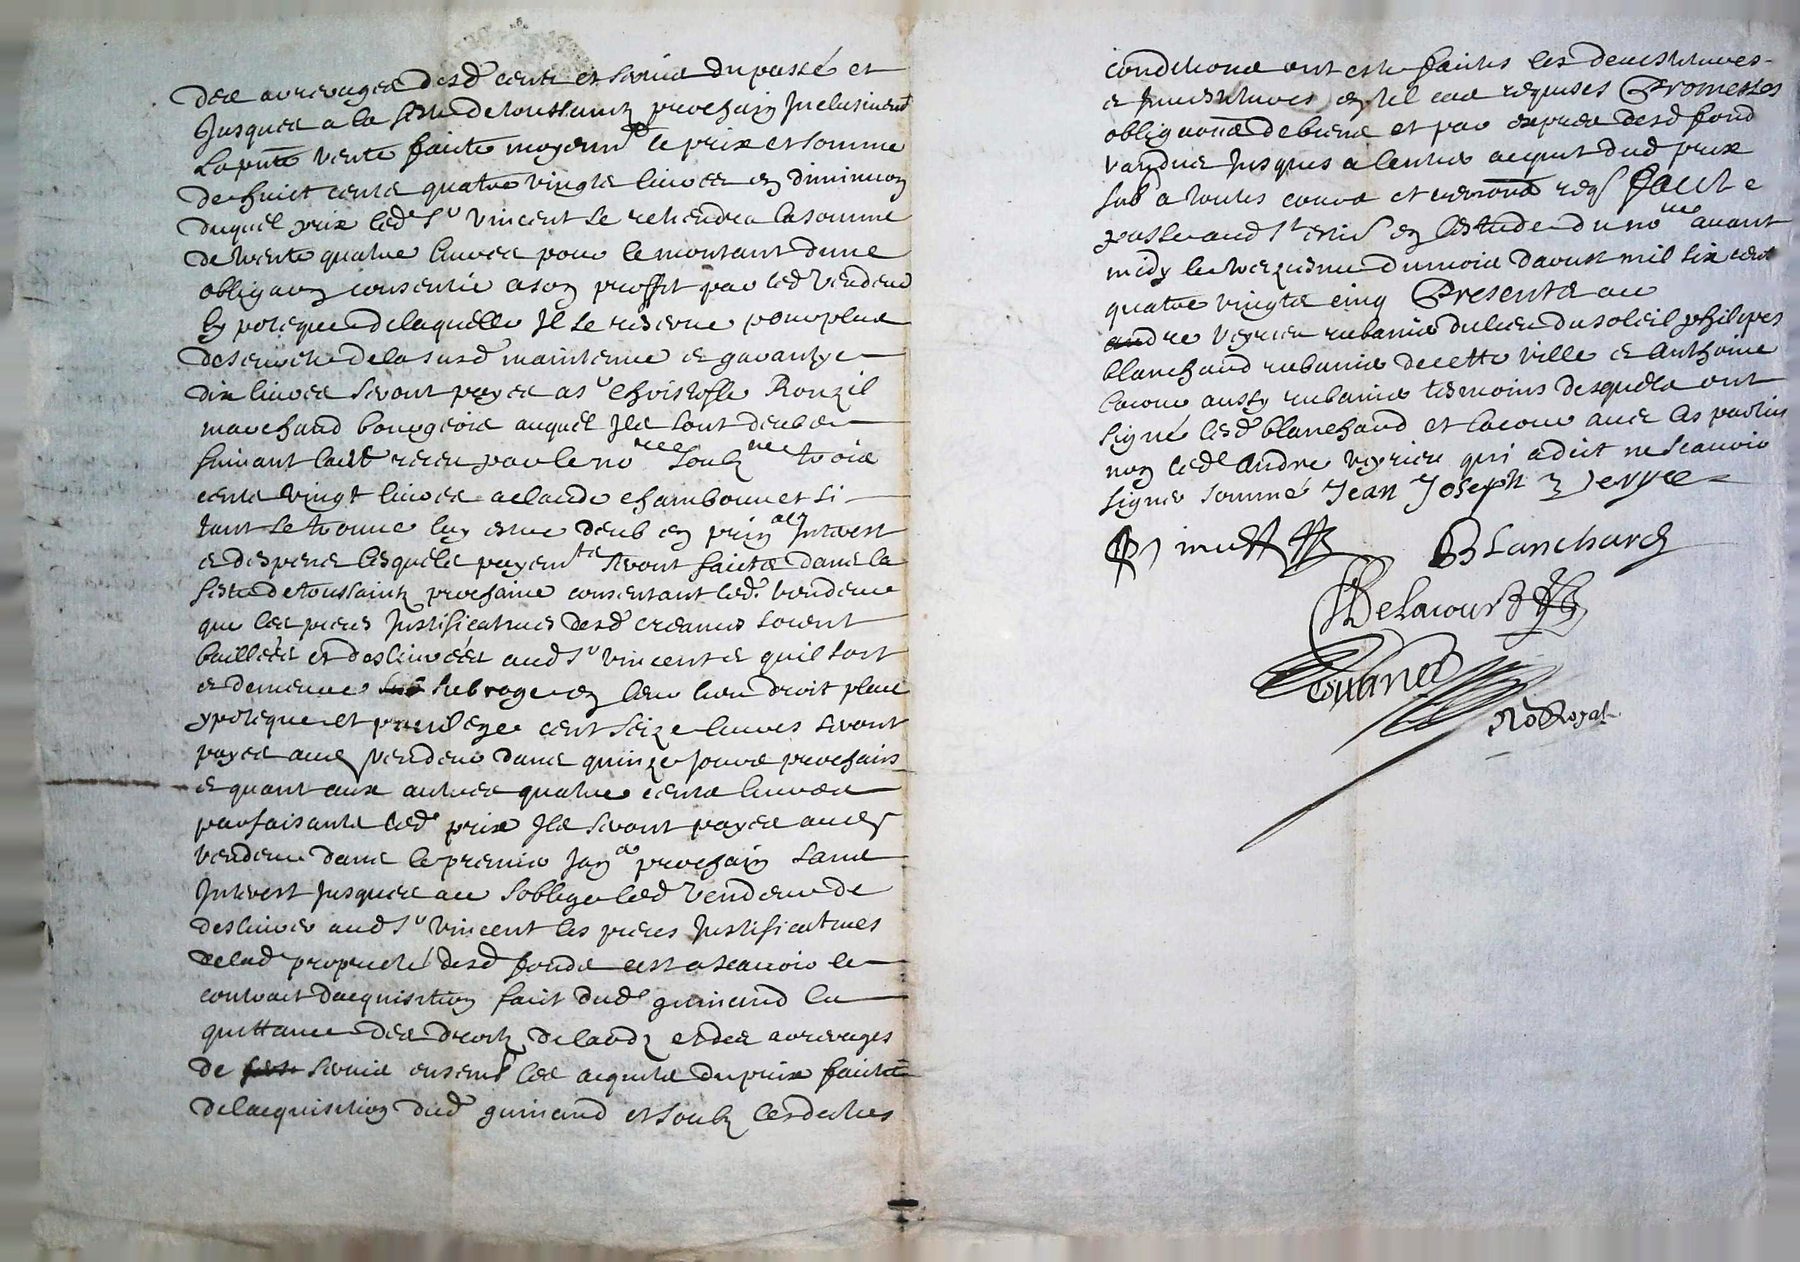 des arrerages desd cens et servis du passé et
Jusques a la feste de toussaintz prochain Inclusivemt
La pnte vente faitte moyent le prix et somme
de huict cents quatre vingts livres en diminuon
duquel prix led Sr Vincent se retiendra la somme
de trente quatre livres pour le montant dune
obligaon consentie a son proffit par led vendeur
hypoteque de laquelle Il se reserve pour plus
de seureté de la susd maintenue et garantye
dix livres seront payes a sr Christofle Rouzil
marchand bourgeois auquel Ils sont deubs
suivant lacte receu par le nore soubz ne trois
cents vingt livres a claude chambonnet si
tant se trouve luy estre deub en prinal Interest
et despens lesquels payemts seront faits dans la
feste de toussaintz prochaine consentant led vendeur
que les pieces Justificatives desd creances soient
baillées et deslivrées aud Sr Vincent et quil soit
et demeure subrogé en leur lieu droit place
ypoteque et privilege cent seize livres seront
payes aud vendeur dans quinze jours prochains
et quant aux autres quatre cents livres
parfaisants led prix Ils seront payes aud
vendeur dans le premier Janer prochain sans
Interest Jusques au soblige led vendeur de
deslivrer aud Sr Vincent les pieces Justificatives
de lad propriété desd fonds cest a scavoir le
contract dacquisition fait dud guinand la
quittance des droitz de laodz et des arrerages
de servis ensemb les acquits du prix faitte
de lacquisition dud guinand et soubz lesdites
conditions ont esté faites les devestitures
et Investitures en tel cas requises Promesses
obligaons de biens et par exprès desd fonds
vandus Jusques a lentier acquit dud prix
sub a toutes cours et renonons req Faict e
passé aud St en lestude du nore avant
midy le treziesme du mois daoust mil six cent
quatre vingts cinq Presents au
andre veyrier rubanier du lieu du soleil philipes
blanchard rubanier de cette ville et anthoine
lacour aussy rubanier tesmoins desquels ont
signé lesd blanchard et lacour avec les parties
non led andre veyrier qui a dict ne scavoir
signer sommé Jean Joseph
Blanchard
Delacourt